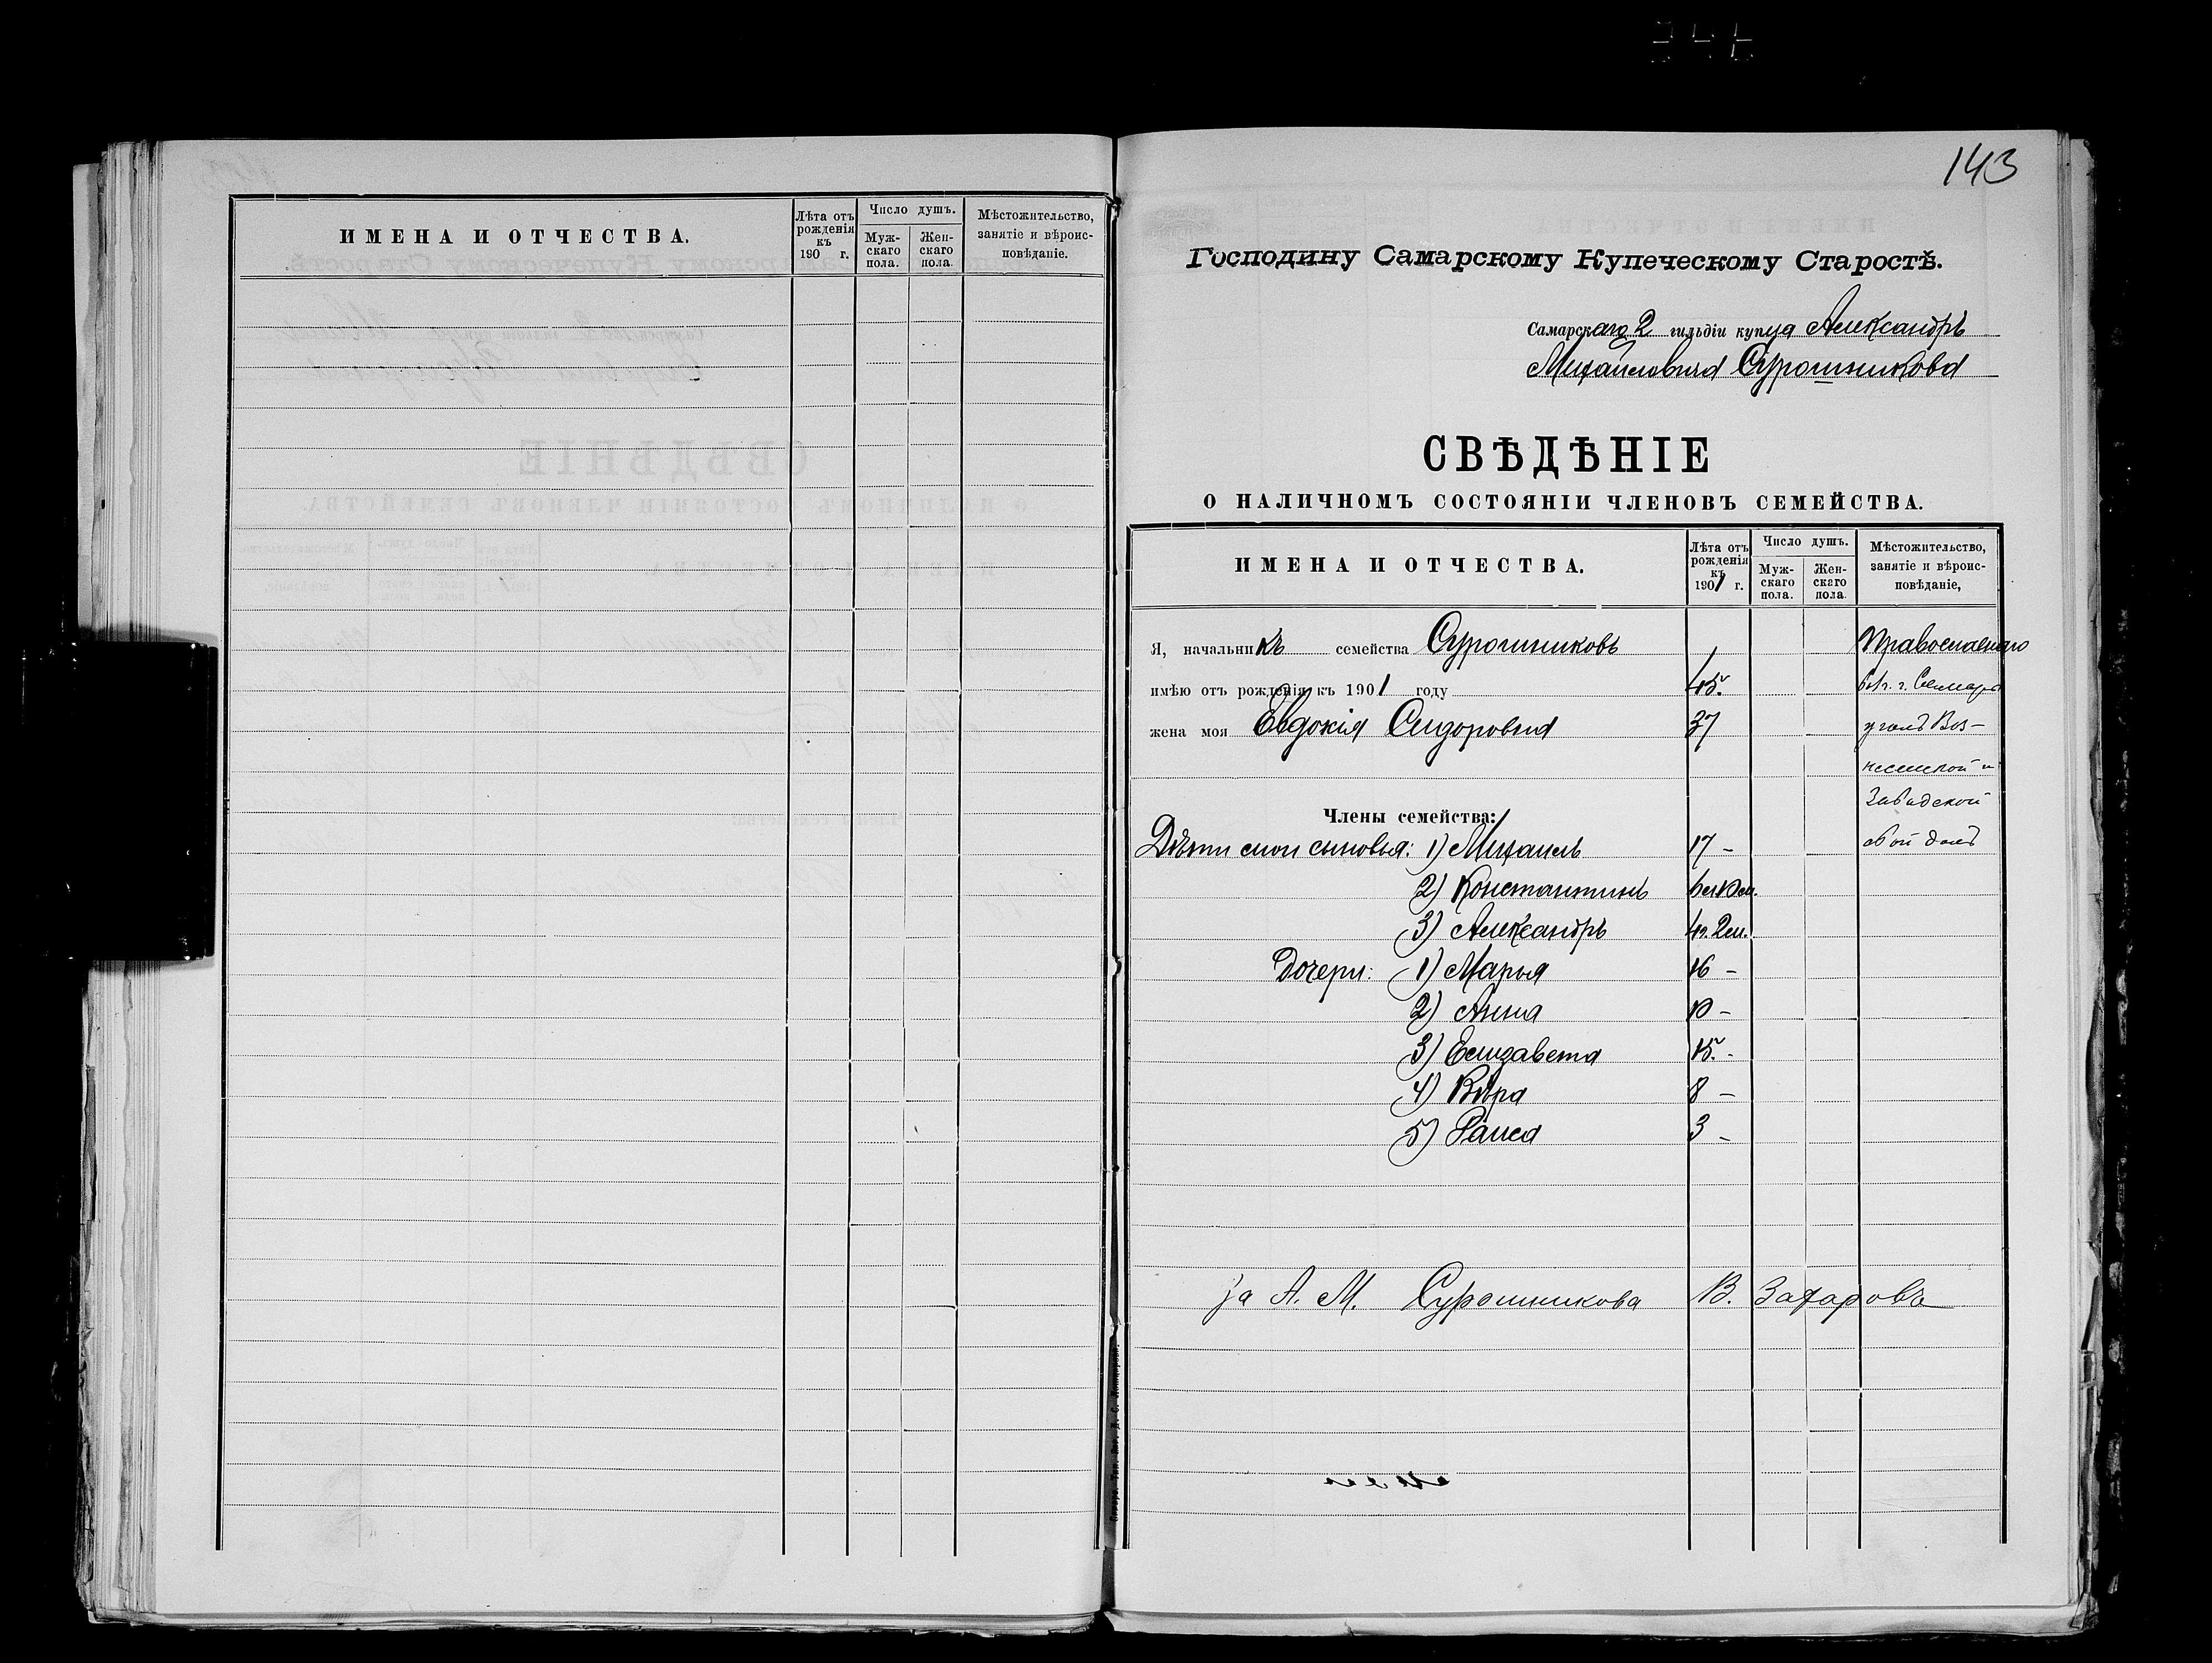 ИМЕНА И ОТЧЕСТВА.
Лѣта отъ рожденія къ 190 г.
Число душъ.
Мужскаго пола.
Женскаго пола.
Мѣстожительство, занятіе и вѣроисповѣданіе.
143
Господину Самарскому Купеческому Старостѣ.
Самарскаго 2 гильдіи купца Александръ
Михайловича Сурошникова
СВѢДѢНІЕ
О НАЛИЧНОМЪ СОСТОЯНІИ ЧЛЕНОВЪ СЕМЕЙСТВА.
ИМЕНА И ОТЧЕСТВА.
Лѣта отъ рожденія къ 1901 г.
Число душъ.
Мужскаго пола.
Женскаго пола.
Мѣстожительство, занятіе и вѣроисповѣданіе,
Я, начальникъ семейства Сурошниковъ Православнаго
имѣю отъ рожденія къ 1901 году 45. г. Самара
жена моя Евдокія Сидоровна 37 уголъ Воз-
несенской и
Заводской
Члены семейства:
Дѣти мои сыновья: 1) Михаилъ 17 - свой домъ
2) Константинъ
3) Александръ 4г. 2м.
Дочери: 1) Марья 16 -
2) Анна 10 -
3) Елизавета 15. -
4) Вѣра 8 -
5) Раиса 3 -
За А. М. Сурошникова В. Захаровъ